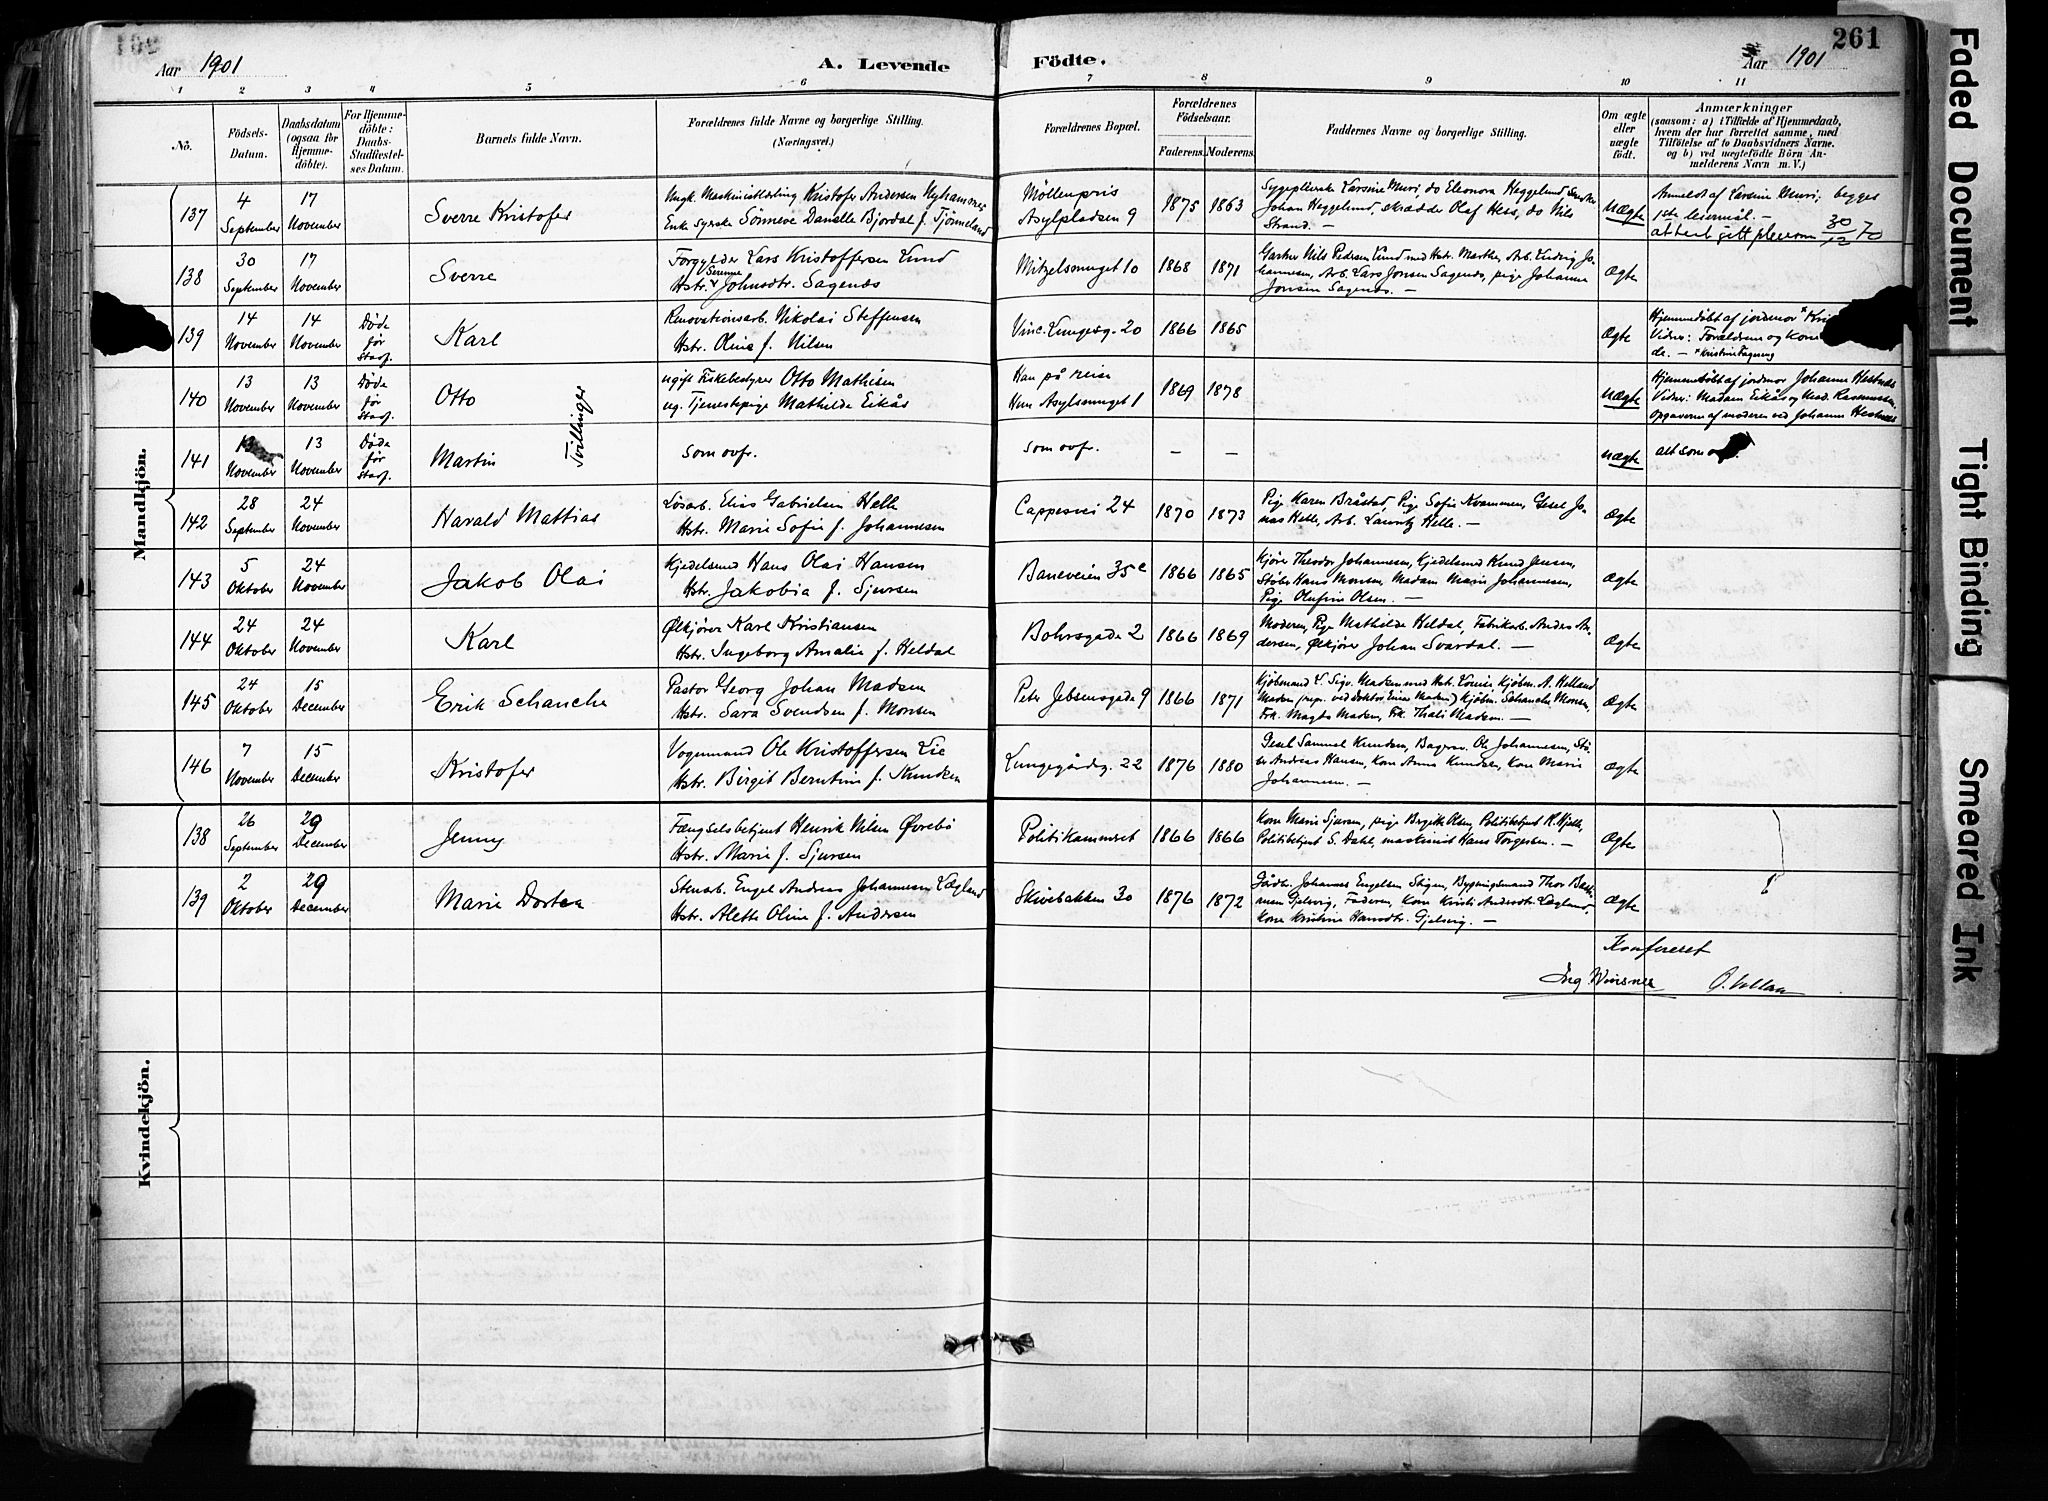 261
Aar 1901
A. Levende
Födte.
Aar 1901
1 2 3 4 5 6 7 8 9 10 11
No.
Födsels-
Datum.
Daabsdatum
(ogsaa for
Hjemme-
döbte).
For Hjemme-
döbte:
Daabs-
Stadfæstel-
ses Datum.
Barnets fulde Navn.
Forældrenes fulde Navne og borgerlige Stilling.
(Næringsvei.)
Forældrenes Bopæl.
Forældrenes
Födselsaar.
Faderens.
Moderens.
Faddernes Navne og borgerlige Stilling.
Om ægte
eller
uægte
født.
Anmærkninger
(saasom: a) i Tilfælde af Hjemmedaab,
hvem der har forrettet samme, med
Tilföielse af to Daabsvidners Navne.
og b) ved uægtefödte Börn An-
melderens Navn m. V.)
Mandkjön.
137
4
September
17
November
Sverre Kristofer
Ungk. Maskinistlærling Kristofer Andersen Nyhamnes
Enke syerske Sönneve Danelle Bjordal f. Tjönneland
Möllenpris
Asylpladsen 9
1875 1863
Sygepleierske Larsine Muri, do Eleonora Heggelund
Johan Heggelund, skrædder Olaf Hess, do Nils
Strand. —
uægte
Anmeldt af Larsine Muri; begges
1ste leiermål. —
30/12 70
138
30
September
17
November
Sverre
Forgylder Lars Kristoffersen Lund
Hstr. Serene Johnsdtr. Sagenæs
Mitzelsmuget 10
1868 1871
Gartner Nils Pedersen Lund med Hstr. Marthe, Arb. Ludvig Jo-
hannesen, Arb. Lars Jonsen Sagenæs, pige Johanne
Jonsen Sagenæs. —
Ægte
139
14
November
14
November
Døde
før
Stadf.
Karl
Renovationsarb. Nikolai Steffensen
Hstr. Oline f. Nilsen
Vinc. Lungesg. 20
1866 1865
Ægte
Hjemmedøbt af jordmor
Vidner: Forældrene og Kone
de. — Kristine Fagneng
140
13
November
13
November
Døde
før
Stadf.
Otto
Tvillinger
ugift Fiskebestyrer Otto Mathisen
ug. Tjenestepige Mathilde Eikås
Han på reise
Hun Asylsmuget 1
1869 1878
uægte
Hjemmedøbt af jordmor Johanne Hestnæs
Vidner: Madam Eikås og Mad. Rasmussen.
Opgaverne af moderen ved Johanne Hestnæs
141
13
November
13
November
Døde
før
Stadf.
Martin
som ovfr.
som ovfr.
— —
uægte
alt som
142
28
September
24
November
Harald Mattias
Løsarb. Elias Gabrielsen Helle
Hstr. Marie Sofie f. Johannesen
Cappesvei 24
1870 1873
Pig. Karen Bråstad, Pige Sofie Kvammen, Gesel Jo-
nas Helle, Arb. Lauritz Helle. —
Ægte
143
5
Oktober
24
November
Jakob Olai
Kjedelsmed Hans Olai Hansen
Hstr. Jakobia f. Sjursen
Baneveien 35c
1866 1865
Kjører Theodor Johannesen, Kjedelsmed Knud Jensen,
Støber Hans Monsen, Madam Marie Johannesen,
Pige Olufine Olsen. —
Ægte
144
24
Oktober
24
November
Karl
Ølkjører Karl Kristiansen
Hstr. Ingeborg Amalie f. Heldal
Bohrsgade 2
1866 1869
Moderen, Pige Mathilde Heldal, Fabrikarb. Anders An-
dersen, Ølkjører Johan Svardal. —
Ægte
145
24
Oktober
15
December
Erik Schanche
Pastor Georg Johan Madsen
Hstr. Sara Svendsen f. Monsen
Peter Jebsensgade 9
1866 1871
Kjøbmand L. Sigv. Madsen med Hstr. Louise, Kjøbm. A. Helland
Madsen (repr. ved Doktor Einar Madsen) Kjøbm. Schanche Monsen,
Frk. Magda Madsen, Frk. Thali Madsen. —
Ægte
146
7
November
15
December
Kristofer
Vognmand Ole Kristoffersen Lie
Hstr. Birgit Berntine f. Knudsen
Lungegårdsg. 22
1876 1880
Gesel Samuel Knudsen, Bagersv. Ole Johannesen, Stø-
ber Andreas Hansen, Kone Anna Knudsen, Kone Marie
Johannesen. —
Ægte
Kvindekjön.
138
26
September
29
December
Jenny
Fængselsbetjent Henrik Nilsen Øvrebö
Hstr. Marie f. Sjursen
Politikammeret
1866 1866
Kone Marie Sjursen, pige Birgitte Olsen, Politibetjent K. Hjelle,
Politibetjent S. Dahl, maskinist Hans Torgersen. —
Ægte
139
2
Oktober
29
December
Marie Dortea
Stenarb. Engel Andreas Johannesen Lægland
Hstr. Alette Oline f. Andersen
Skivebakken 30
1876 1872
Gårdbr. Johannes Engelsen Stigen, Bygningsmand Thor
Gjelsvig, Faderen, Kone Kristi Andersdtr. Lægland,
Kone Kristine Hansdtr. Gjelsvig. —
Ægte
Konfereret
Winsnes
O. Vollan
Faded Document
Tight Binding
Smeared Ink